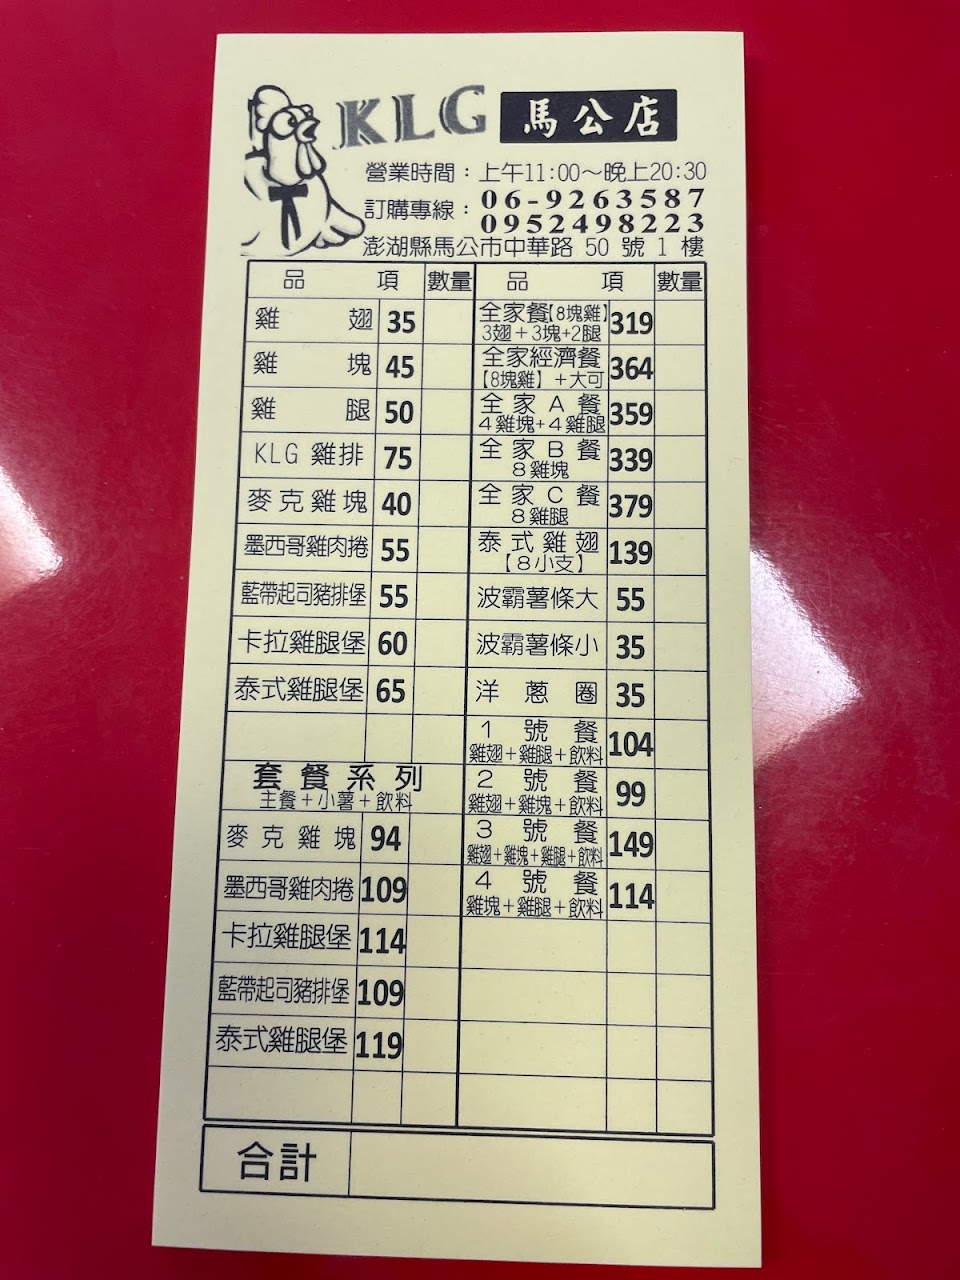 KLG 馬公店
營業時間：上午11:00～晚上20:30
訂購專線：06-9263587
0952498223
澎湖縣馬公市中華路 50 號 1 樓
品 項 數量
雞 翅 35
雞 塊 45
雞 腿 50
KLG 雞排 75
麥克雞塊 40
墨西哥雞肉捲 55
藍帶起司豬排堡 55
卡拉雞腿堡 60
泰式雞腿堡 65
套餐系列
主餐＋小薯＋飲料
麥克雞塊 94
墨西哥雞肉捲 109
卡拉雞腿堡 114
藍帶起司豬排堡 109
泰式雞腿堡 119
品 項 數量
全家餐【8塊雞】 319
3翅＋3塊+2腿
全家經濟餐 364
【8塊雞】＋大可
全家A餐 359
4雞塊+4雞腿
全家B餐 339
8雞塊
全家C餐 379
8雞腿
泰式雞翅 139
【8小支】
波霸薯條大 55
波霸薯條小 35
洋蔥圈 35
1號餐 104
雞翅＋雞腿＋飲料
2號餐 99
雞翅＋雞塊＋飲料
3號餐 149
雞翅＋雞塊＋雞腿＋飲料
4號餐 114
雞塊＋雞腿＋飲料
合計